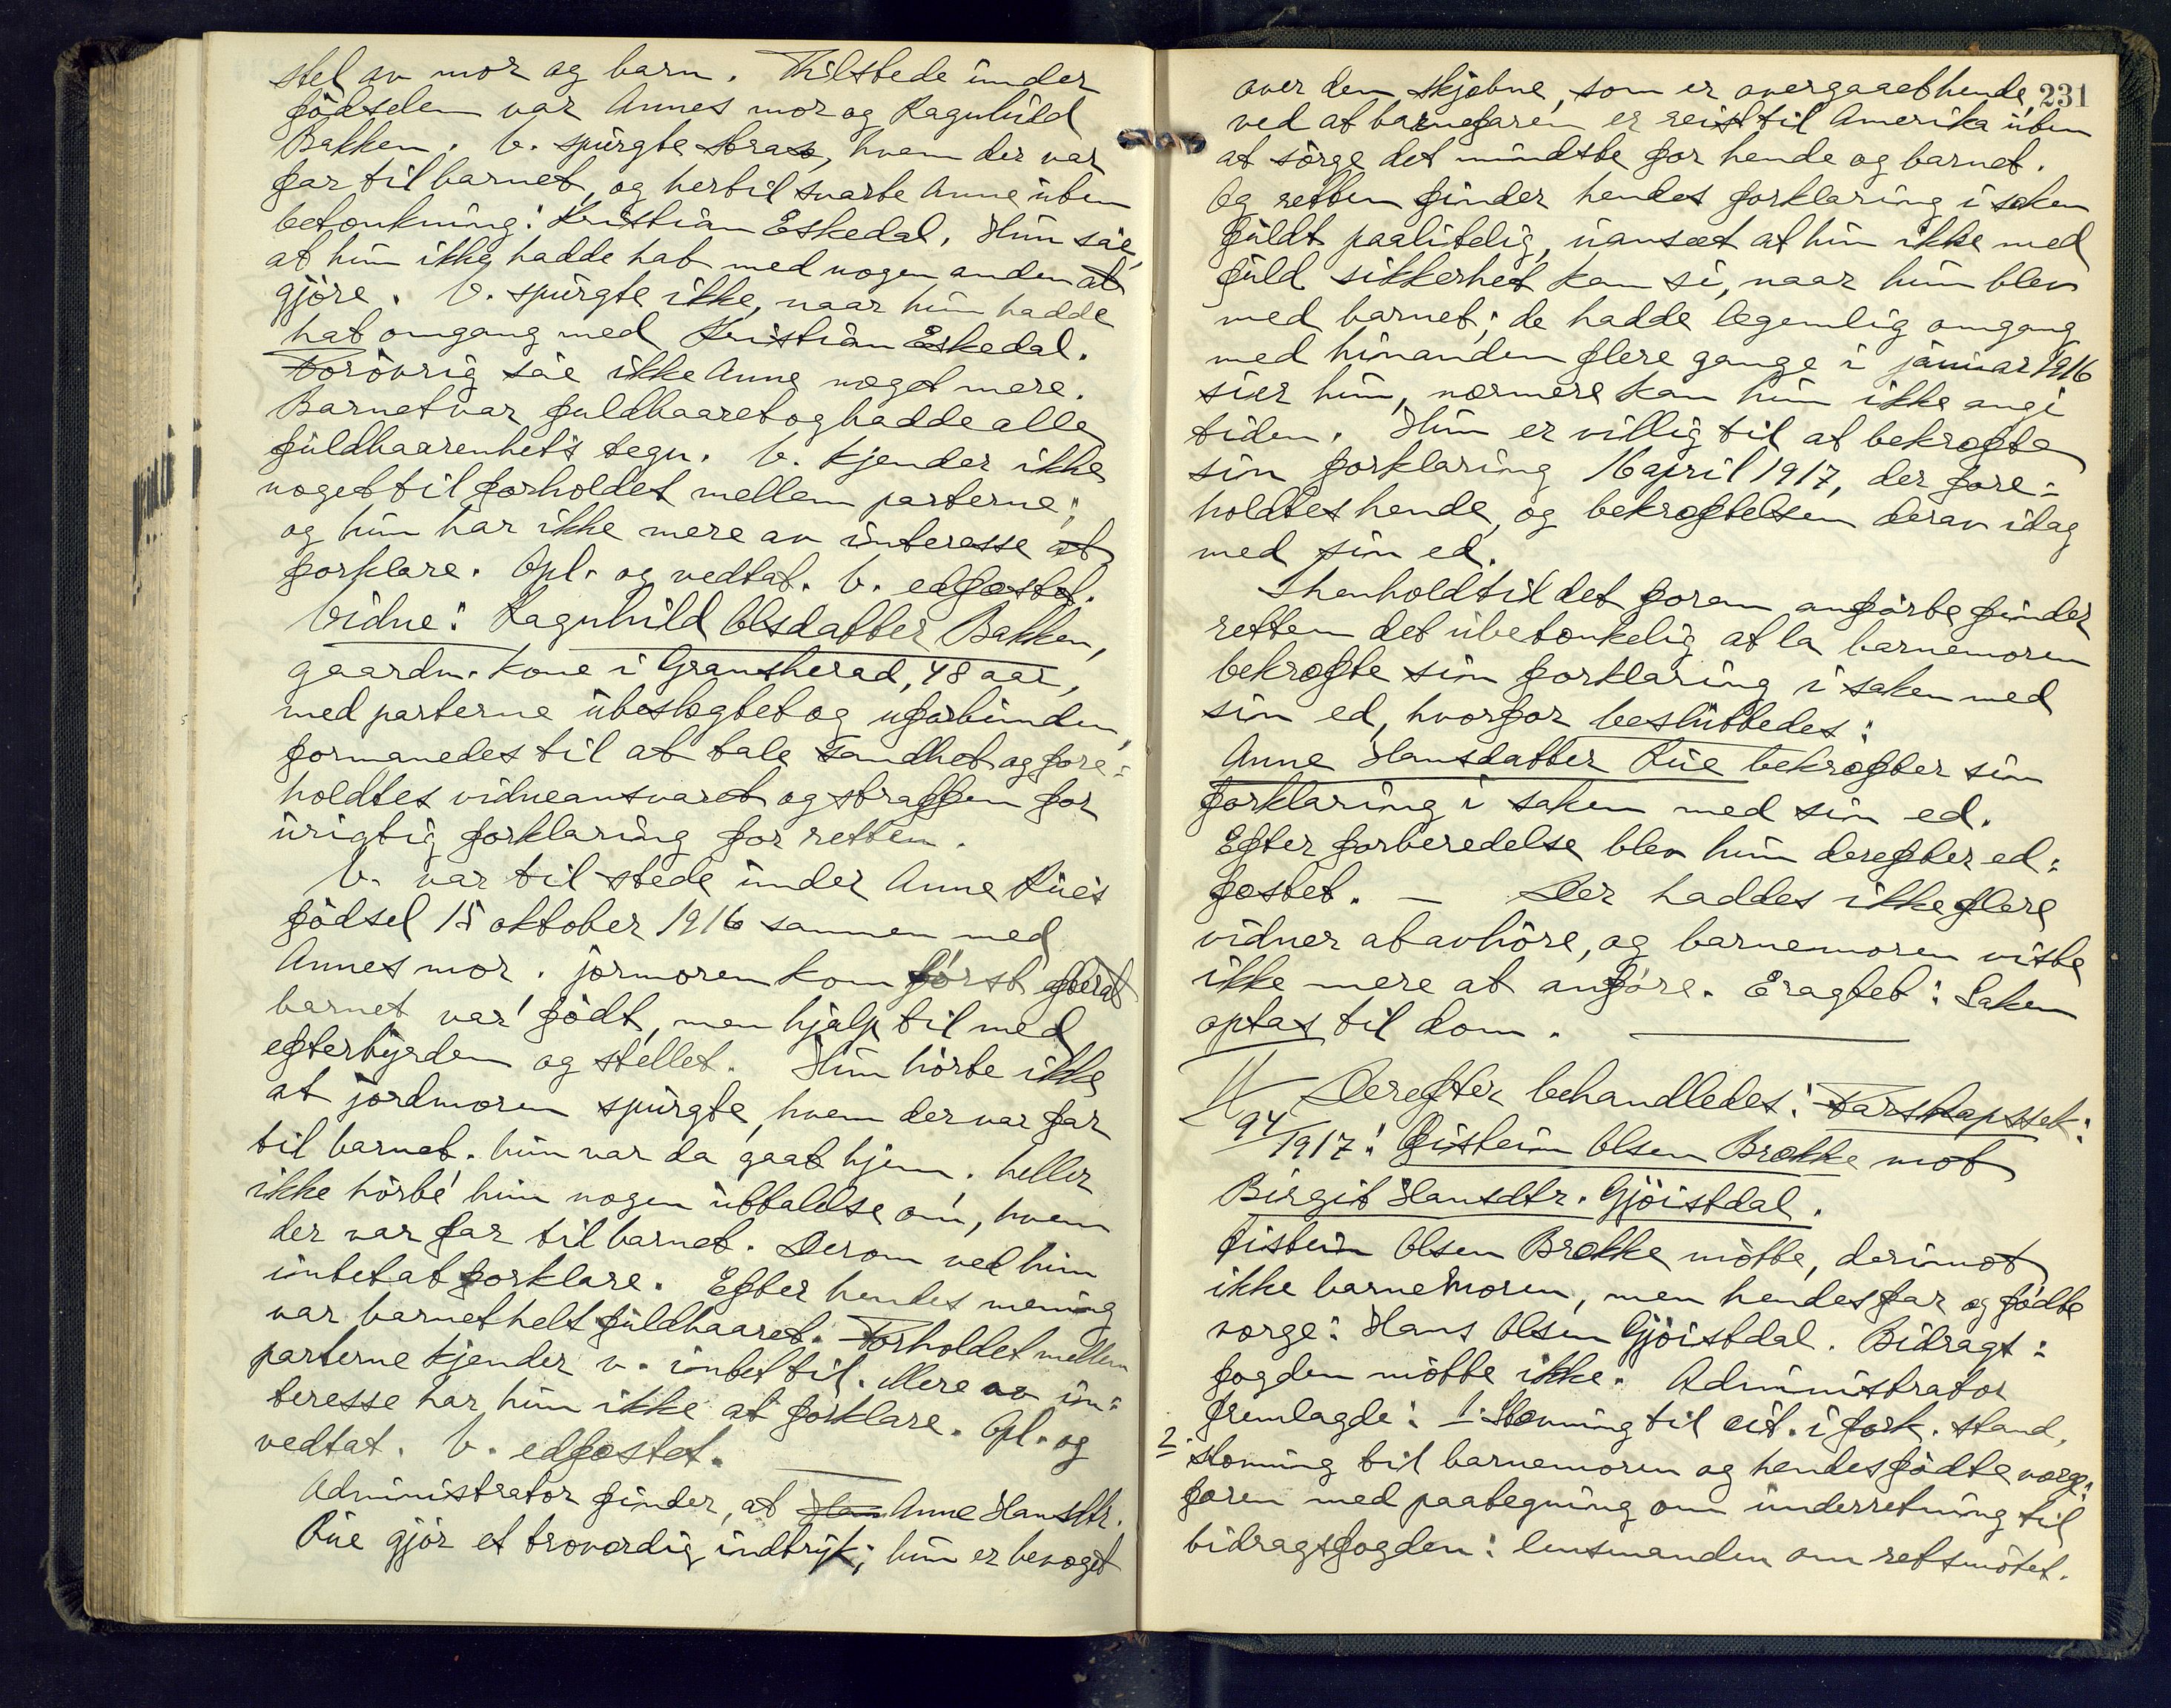 stel av mor og barn. Tilstede under
fødselen var Annes mor og Ragnhild
Bakken. V. spurgte strax, hvem der var
far til barnet, og hertil svarte Anne uten
betænkning: Kristian Eskedal. Hun sa,
at hun ikke hadde hat med nogen anden at
gjøre. V. spurgte ikke, naar hun hadde
hat omgang med Kristian Eskedal.
Forøvrig sa ikke Anne noget mere.
Barnet var fuldbaaret og hadde alle
fuldbaarenhets tegn. V. kjender ikke
noget til forholdet mellem parterne;
og hun har ikke mere av interesse at
forklare. Opl. og vedtat. V. edfæstet.
Vidne: Ragnhild Olsdatter Bakken,
gaardm. kone i Gransherad, 48 aar,
med parterne ubeslegtet og uforbunden,
formanedes til at tale sandhet og fore-
holdtes vidneansvaret og straffen for
urigtig forklaring for retten.
V. var tilstede under Anne Rues
fødsel 15 oktober 1916 sammen med
Annes mor. jormoren kom først efterat
barnet var født, men hjalp til med
efterbyrden og stellet. Hun hørte ikke
at jordmoren spurgte, hvem der var far
til barnet. hun var da gaat hjem. heller
ikke hørte hun nogen uttalelse om, hvem
der var far til barnet. Derom ved hun
intet at forklare. Efter hendes mening
var barnet helt fuldbaaret. Forholdet mellem
parterne kjender v. intet til. Mere av in-
teresse har hun ikke at forklare. Opl. og
vedtat. V. edfæstet.
Administrator finder, at Anne Hansdtr.
Rue gjør et troværdig indtryk; hun er bevæget
231
over den skjæbne, som er overgaaet hende,
ved at barnefaren er reist til Amerika uten
at sørge det mindste for hende og barnet.
Og retten finder hendes forklaring i saken
fuldt paalitelig, uanset at hun ikke med
fuld sikkerhet kan si, naar hun blev
med barnet; de hadde legemlig omgang
med hinanden flere gange i januar 1916
sier hun, nærmere kan hun ikke angi
tiden. Hun er villig til at bekræfte
sin forklaring 16 april 1917, der fore-
holdtes hende, og bekræftelsen derav idag
med sin ed.
I henhold til det foran anførte finder
retten det ubetænkelig at la barnemoren
bekræfte sin forklaring i saken med
sin ed, hvorfor besluttedes:
Anne Hansdatter Rue bekræfter sin
forklaring i saken med sin ed.
Efter forberedelse blev hun derefter ed-
fæstet. — Der haddes ikke flere
vidner at avhøre, og barnemoren visste
ikke mere at anføre. Eragtet: Saken
optas til dom.
Derefter behandledes: Farskapssak:
94/1917: Gistein Olsen Brække mot
Birgit Hansdtr. Gjøistdal.
Gistein Olsen Brække møtte, derimot
ikke barnemoren, men hendes far og fødte
verge: Hans Olsen Gjøistdal. Bidrags-
fogden møtte ikke. Administrator
fremlagde: 1. Stævning til cit. i fork. stand,
2. stævning til barnemoren og hendes fødte verge:
faren med paategning om underretning til
bidragsfogden: lensmanden om retsmøtet.